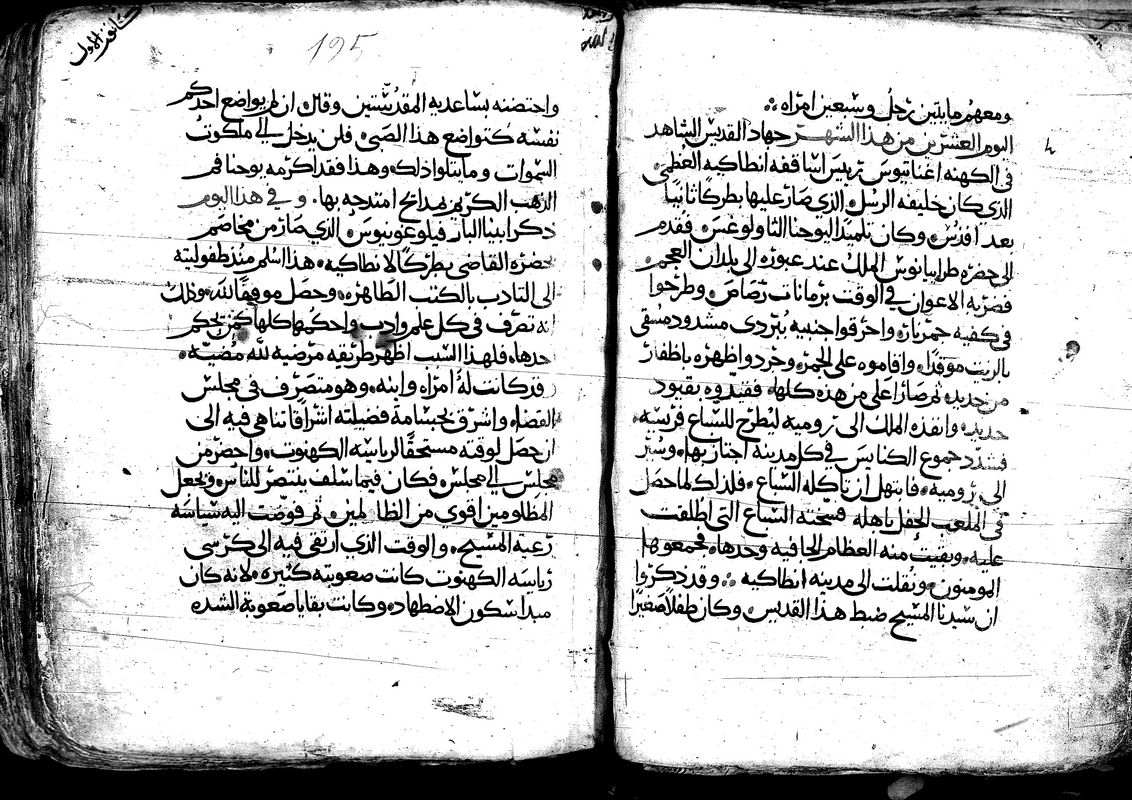 ومعهم مايتين رجل وسبعين امراه
اليوم العشرين من هذا الشهر جهاد القديس الشاهد
في الكهنه اغناتيوس رييس اساقفه انطاكيه العظمى
الذي كان خليفه الرسل الذي صار عليها بطركا ثانيا
بعد افدس وكان تلميذا ليوحنا الثاولوغس فقدم
الى حضره طرايانوس الملك عند عبوره الى بلدان العجم
فضربه الاعوان في الوقت برمانات رصاص وطرحوا
في كفيه جمر ناره واحرقوا جنبيه ببردي مشدود مسقى
بالزيت موقدا واقاموه على الجمر وخردوا ظهره باظفار
من حديد ثم صار اعلى من هذه كلها فقيدوه بقيود
حديد وانفذه الملك الى روميه ليطرح للسباع فريسه
فشدد جموع الكنايس في كل مدينه اجتاز بها وسير
الى روميه فابتهل ان تاكله السباع فلذلك لما حصل
في الملعب الحفل باهله فسخته السباع التي اطلقت
عليه وبقيت منه العظام الجافيه وحدها فجمعوها
المومنون ونقلت الى مدينه انطاكيه وقد ذكروا
ان سيدنا المسيح ضبط هذا القديس وكان طفلا صغيرا
كانون الاول
195
واحتضنه بساعديه المقدستين وقال ان لم يواضع احدكم
نفسه كتواضع هذا الصبي فلن يدخل الى ملكوت
السموات وما يتلوا ذلك وهذا فقد اكرمه يوحنا فم
الذهب الكريم بمدايح امتدحه بها وفي هذا اليوم
ذكر ابينا البار فيلوغونيوس الذي صار من مخاصم
بحضره القاضي بطركا لانطاكيه هذا اسلم منذ طفوليته
الى التادب بالكتب الطاهره وحصل موفقا لله وذلك
انه تصرف في كل علم وادب واحكمها كلها كمن يحكم
حدها فلهذا السبب اظهر طريقه مرضيه لله مضيه
وقد كانت له امراه وابنه وهو متصرف في مجلس
القضا واشرق بجسامة فضيلته اشراقا تناهى فيه الى
ان حصل لوقته مستحقا لرياسه الكهنوت واحضر من
مجلس الى مجلس فكان فيما سلف ينتصر للناس ويجعل
المظلومين اقوى من الظالمين ثم فوضت اليه سياسه
رعيه المسيح والوقت الذي ارتقى فيه الى كرسي
رياسه الكهنوت كانت صعوبته كثيره لانه كان
مبدا سكون الاضطهاد وكانت بقايا صعوبة الشده